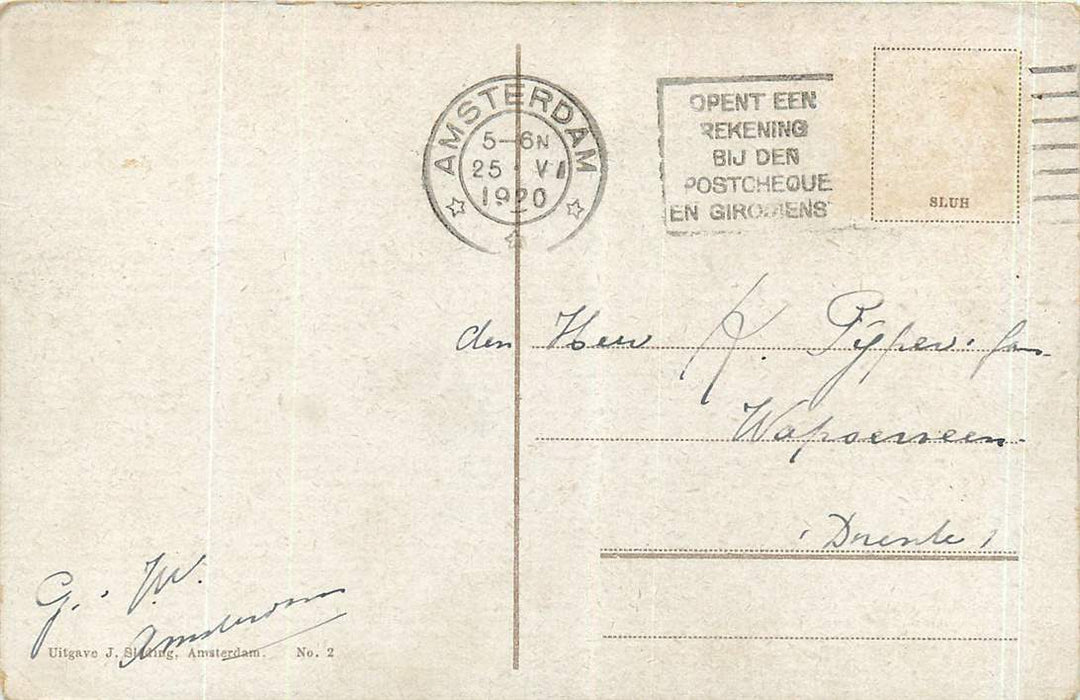 AMSTERDAM
5-6N
25 VI
1920
OPENT EEN
REKENING
BIJ DEN
POSTCHEQUE
EN GIRODIENST
SLUH
den Heer K. Pijper.
Wapserveen
Drente
G. W.
Amsterdam
Uitgave J. Sluding, Amsterdam. No. 2